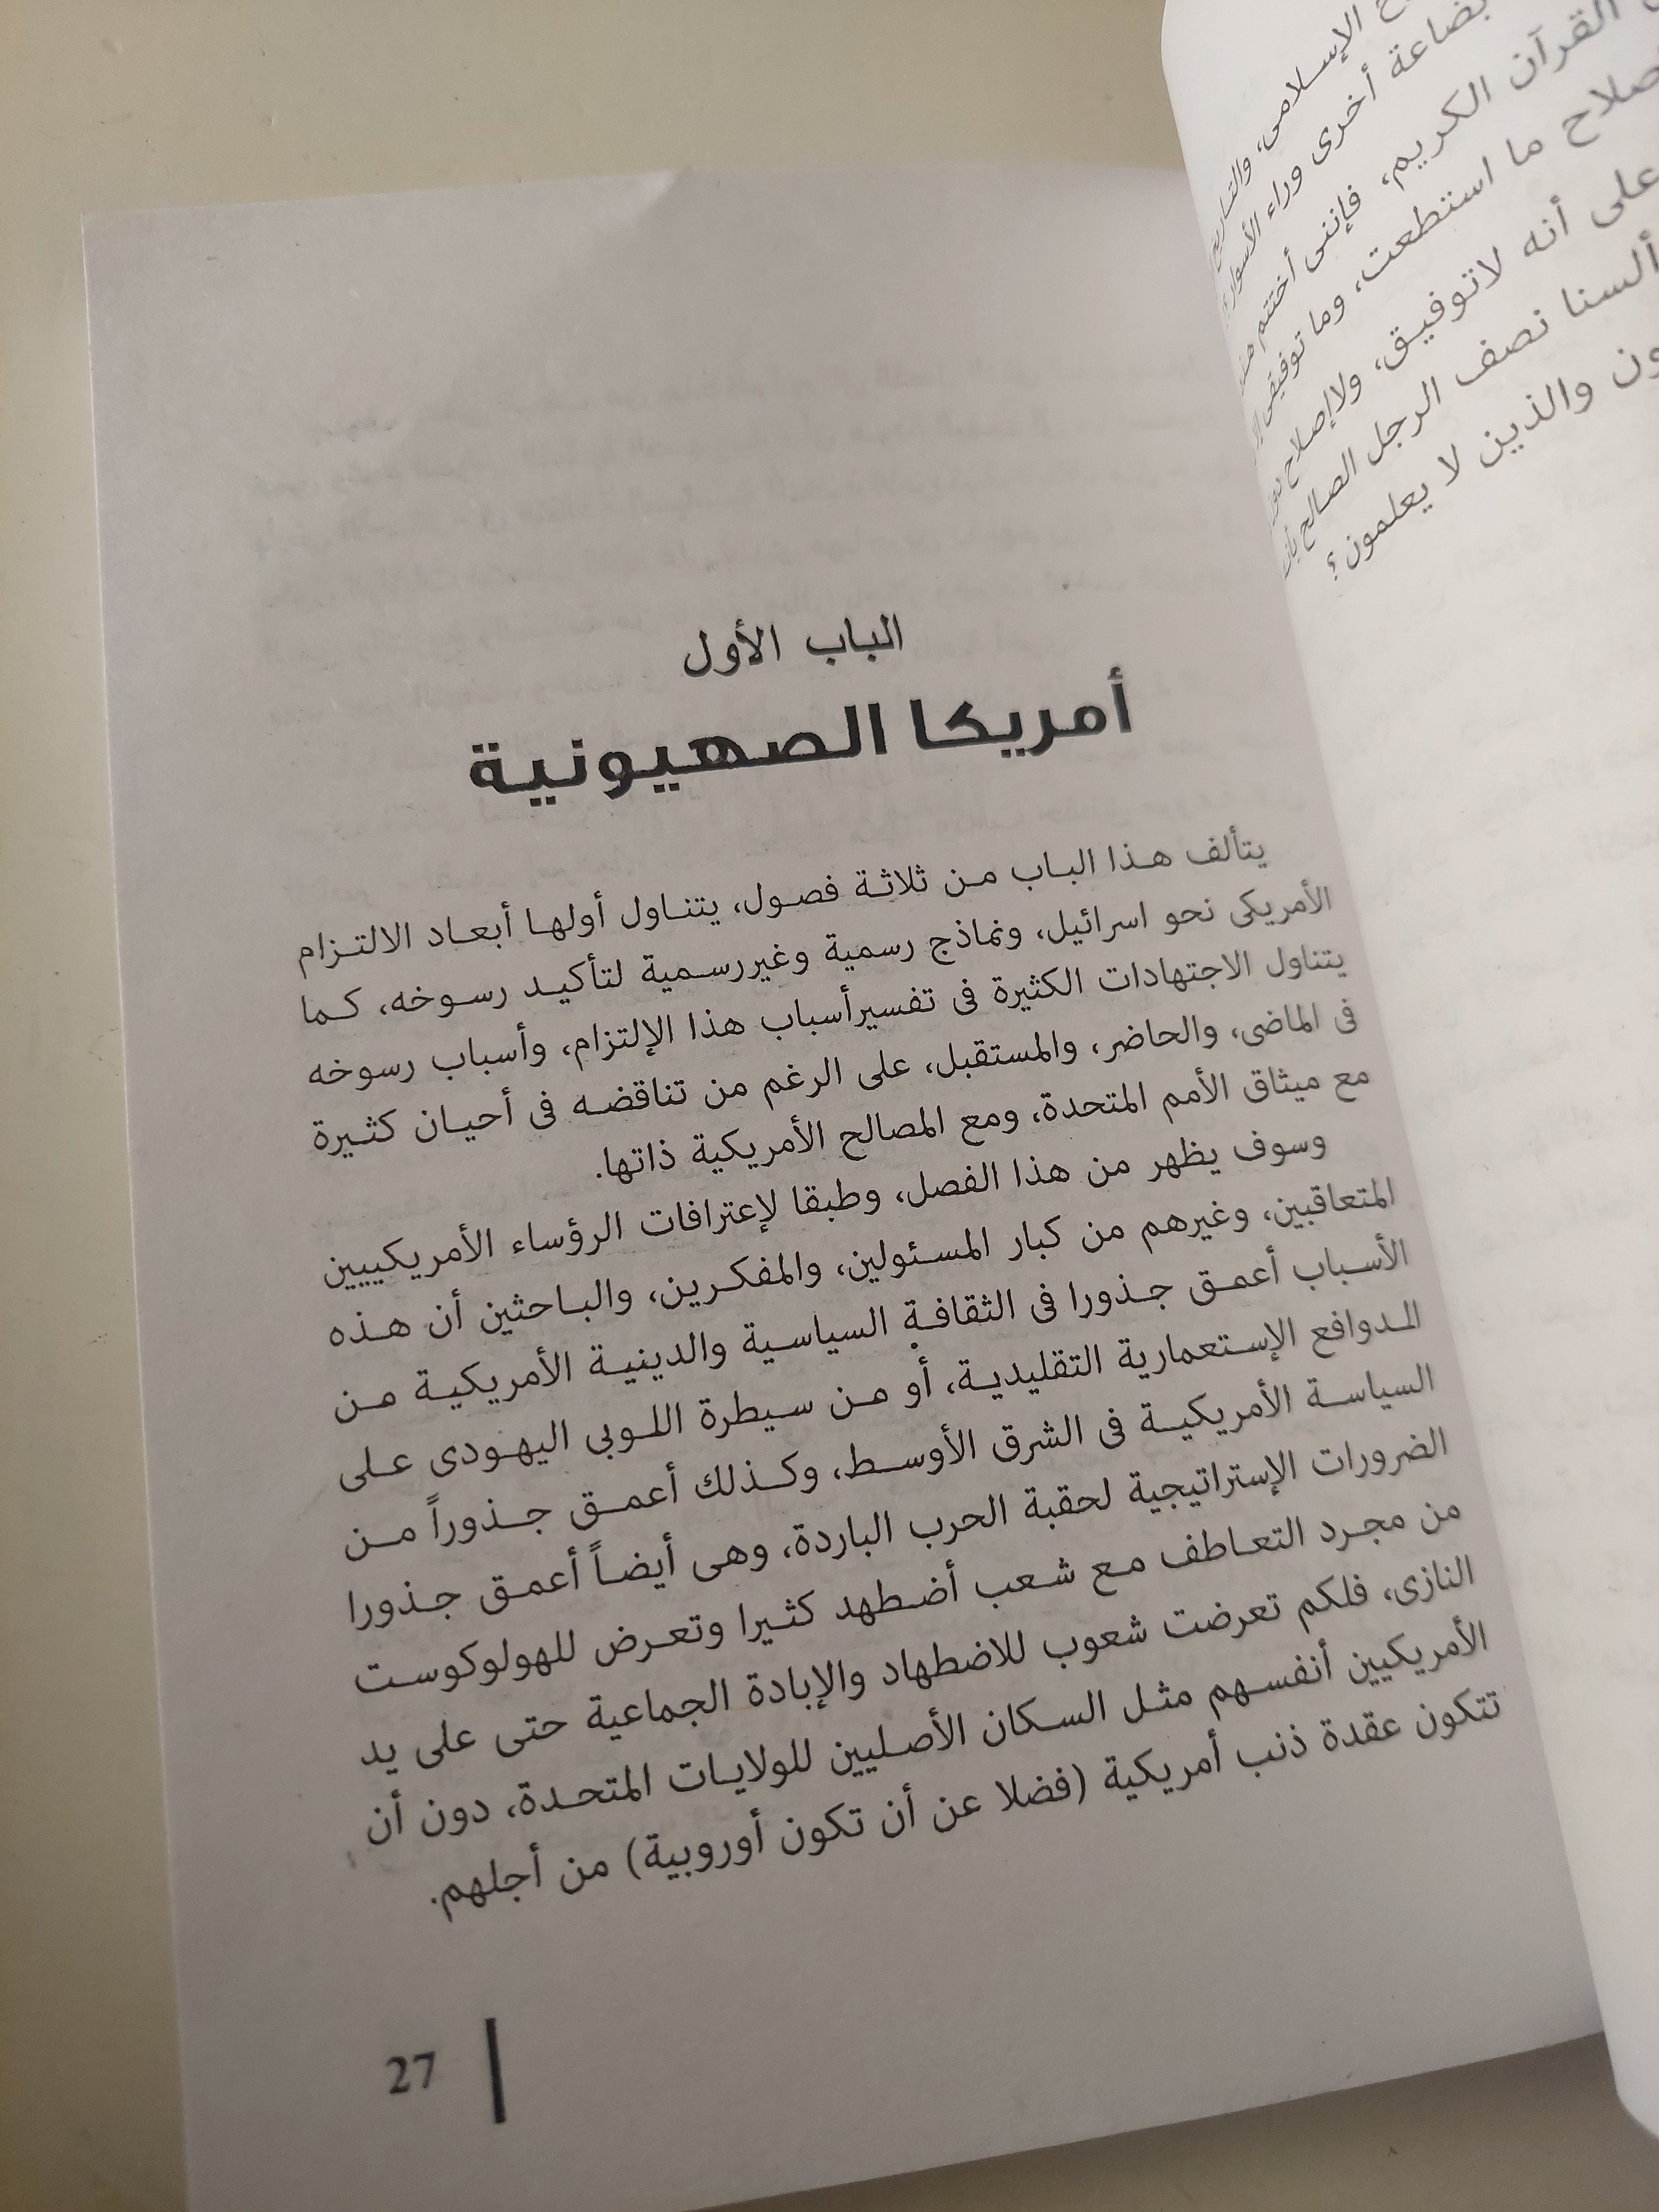 الإسلامى، والتاريخ
بضاعة أخرى وراء الأسوار
القرآن الكريم، فإننى أختتم
ما استطعت، وما توفيقى
على أنه لاتوفيق، ولاإصلاح
ألسنا نصف الرجل الصالح بأنه
والذين لا يعلمون ؟
الباب الأول
أمريكا الصهيونية
يتألف هذا الباب من ثلاثة فصول، يتناول أولها أبعاد الالتزام
الأمريكى نحو اسرائيل، ونماذج رسمية وغيررسمية لتأكيد رسوخه، كما
يتناول الاجتهادات الكثيرة فى تفسيرأسباب هذا الإلتزام، وأسباب رسوخه
فى الماضى، والحاضر، والمستقبل، على الرغم من تناقضه فى أحيان كثيرة
مع ميثاق الأمم المتحدة، ومع المصالح الأمريكية ذاتها.
وسوف يظهر من هذا الفصل، وطبقا لإعترافات الرؤساء الأمريكييين
المتعاقبين، وغيرهم من كبار المسئولين، والمفكرين، والباحثين أن هذه
الأسباب أعمق جذورا فى الثقافة السياسية والدينية الأمريكية من
الدوافع الإستعمارية التقليدية، أو من سيطرة اللوبى اليهودى على
السياسة الأمريكية فى الشرق الأوسط، وكذلك أعمق جذوراً من
الضرورات الإستراتيجية لحقبة الحرب الباردة، وهى أيضاً أعمق جذورا
من مجرد التعاطف مع شعب أضطهد كثيرا وتعرض للهولوكوست
النازى، فلكم تعرضت شعوب للاضطهاد والإبادة الجماعية حتى على يد
الأمريكيين أنفسهم مثل السكان الأصليين للولايات المتحدة، دون أن
تتكون عقدة ذنب أمريكية (فضلا عن أن تكون أوروبية) من أجلهم.
27